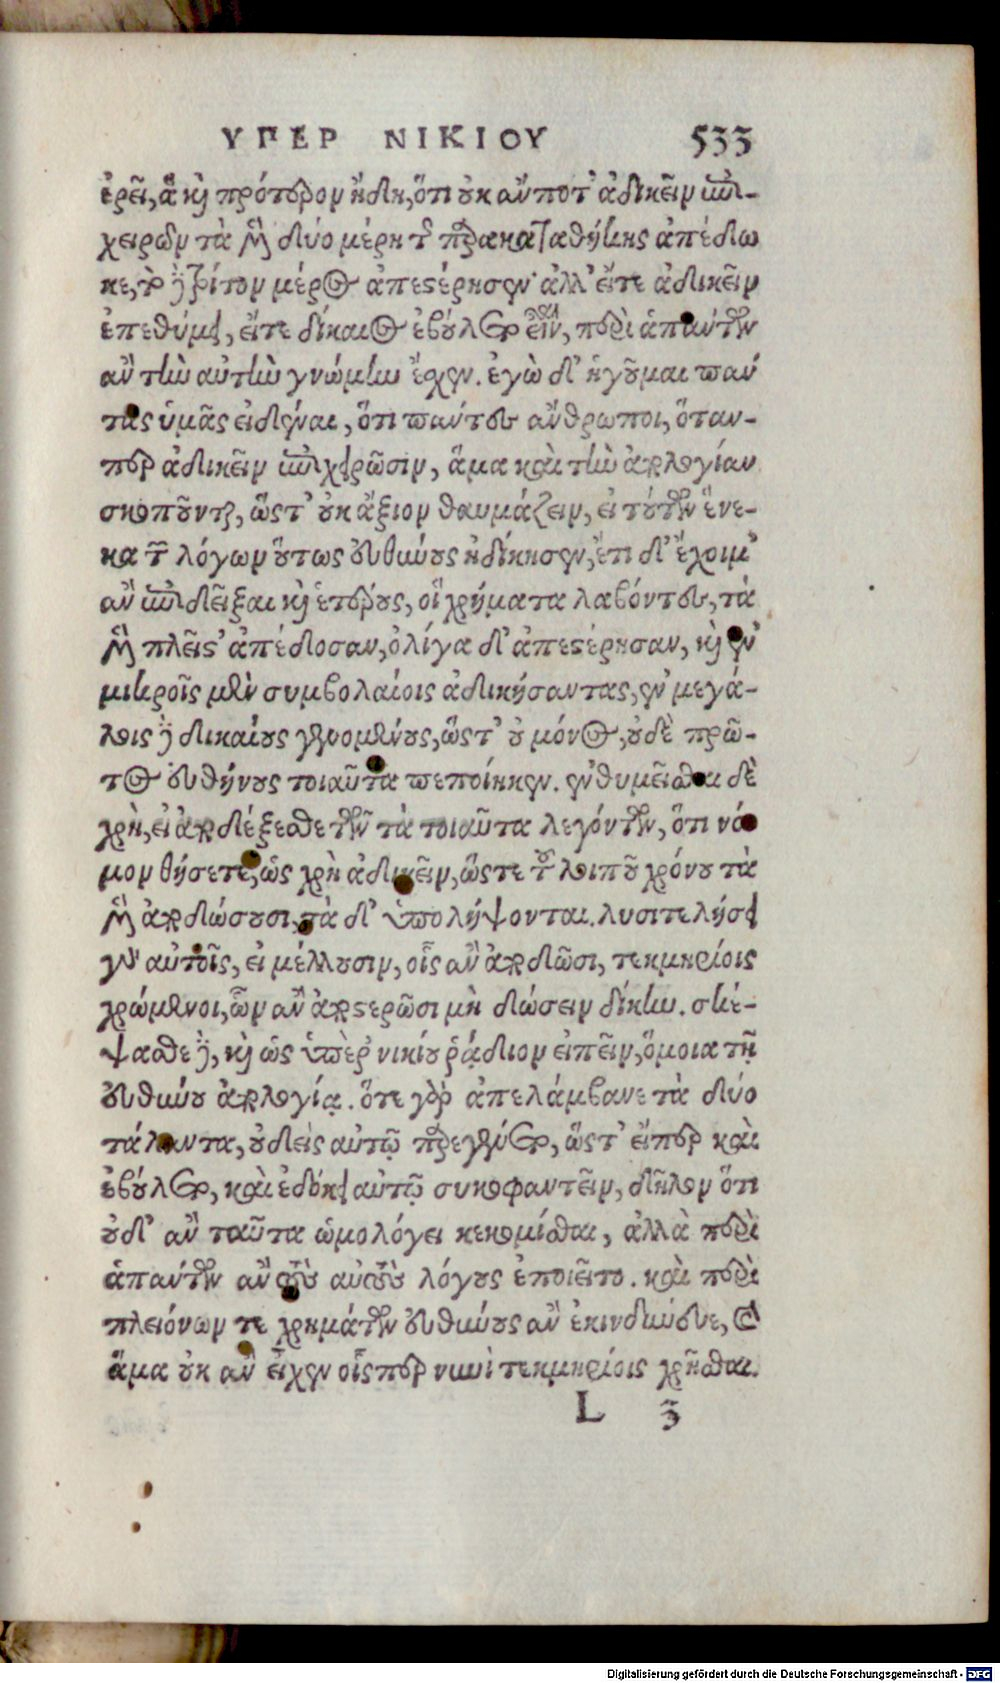 ΥΠΕΡ ΝΙΚΙΟΥ 533
ἐρεῖ, ἃ καὶ πρότερον ἤδη, ὅτι οὐκ ἄν ποτ' ἀδικεῖν ἐπι-
χειρῶν τὰ μὲν δύο μέρη τῆς παρακαταθήκης ἀπέδω
κε, τὸ δὲ τρίτον μέρος ἀπεστέρησεν· ἀλλ' εἴτε ἀδικεῖν
ἐπεθύμει, εἴτε δίκαιος ἐβούλετο εἶναι, περὶ ἁπάντων
ἂν τὴν αὐτὴν γνώμην ἔχειν. ἐγὼ δ' ἡγοῦμαι παν
τας ὑμᾶς εἰδέναι, ὅτι πάντες ἄνθρωποι, ὅταν-
περ ἀδικεῖν ἐπιχειρῶσιν, ἅμα καὶ τὴν ἀπολογίαν
σκοποῦνται, ὥστ' οὐκ ἄξιον θαυμάζειν, εἰ τούτων ἕνε-
κα τῶν λόγων οὕτως εὐθύνους ἠδίκησεν, ἔτι δ' ἔχοιμ'
ἂν ἐπιδεῖξαι καὶ ἑτέρους, οἳ χρήματα λαβόντες, τὰ
μὲν πλεῖστ' ἀπέδοσαν, ὀλίγα δ' ἀπεστέρησαν, καὶ ἐν
μικροῖς μὲν συμβολαίοις ἀδικήσαντας, ἐν μεγά-
λοις δὲ δικαίους γενομένους, ὥστ' οὐ μόνος, οὐδὲ πρῶ-
τος εὐθήνους τοιαῦτα πεποίηκεν. ἐνθυμεῖσθαι δὲ
χρὴ, εἰ ἀποδέξεσθε τῶν τὰ τοιαῦτα λεγόντων, ὅτι νό
μον θήσετε, ὡς χρὴ ἀδικεῖν, ὥστε τοῦ λοιποῦ χρόνου τὰ
μὲν ἀποδώσουσι, τὰ δ' ὑπολήψονται. λυσιτελήσει
γὰρ αὐτοῖς, εἰ μέλλουσιν, οἷς ἂν ἀποδῶσι, τεκμηρίοις
χρώμενοι, ὧν ἂν ἀποστερῶσι μὴ δώσειν δίκην. σκέ-
ψασθε δὲ, καὶ ὡς ὑπὲρ νικίου ῥᾴδιον εἰπεῖν, ὅμοια τῇ
εὐθύνου ἀπολογίᾳ. ὅτε γὰρ ἀπελάμβανε τὰ δύο
τάλαντα, οὐδεὶς αὐτῷ παρεγένετο, ὥστ' εἴπερ καὶ
ἐβούλετο, καὶ ἐδόκει αὐτῷ συκοφαντεῖν, δῆλον ὅτι
οὐδ' ἂν ταῦτα ὡμολόγει κεκομίσθαι, ἀλλὰ περὶ
ἁπάντων ἂν τοὺς αὐτοὺς λόγους ἐποιεῖτο. καὶ περὶ
πλειόνων τε χρημάτων εὐθύνους ἂν ἐκινδύνευε, καὶ
ἅμα οὐκ ἂν εἶχεν οἷσπερ νυνὶ τεκμηρίοις χρῆσθαι.
L 3
Digitalisierung gefördert durch die Deutsche Forschungsgemeinschaft - DFG